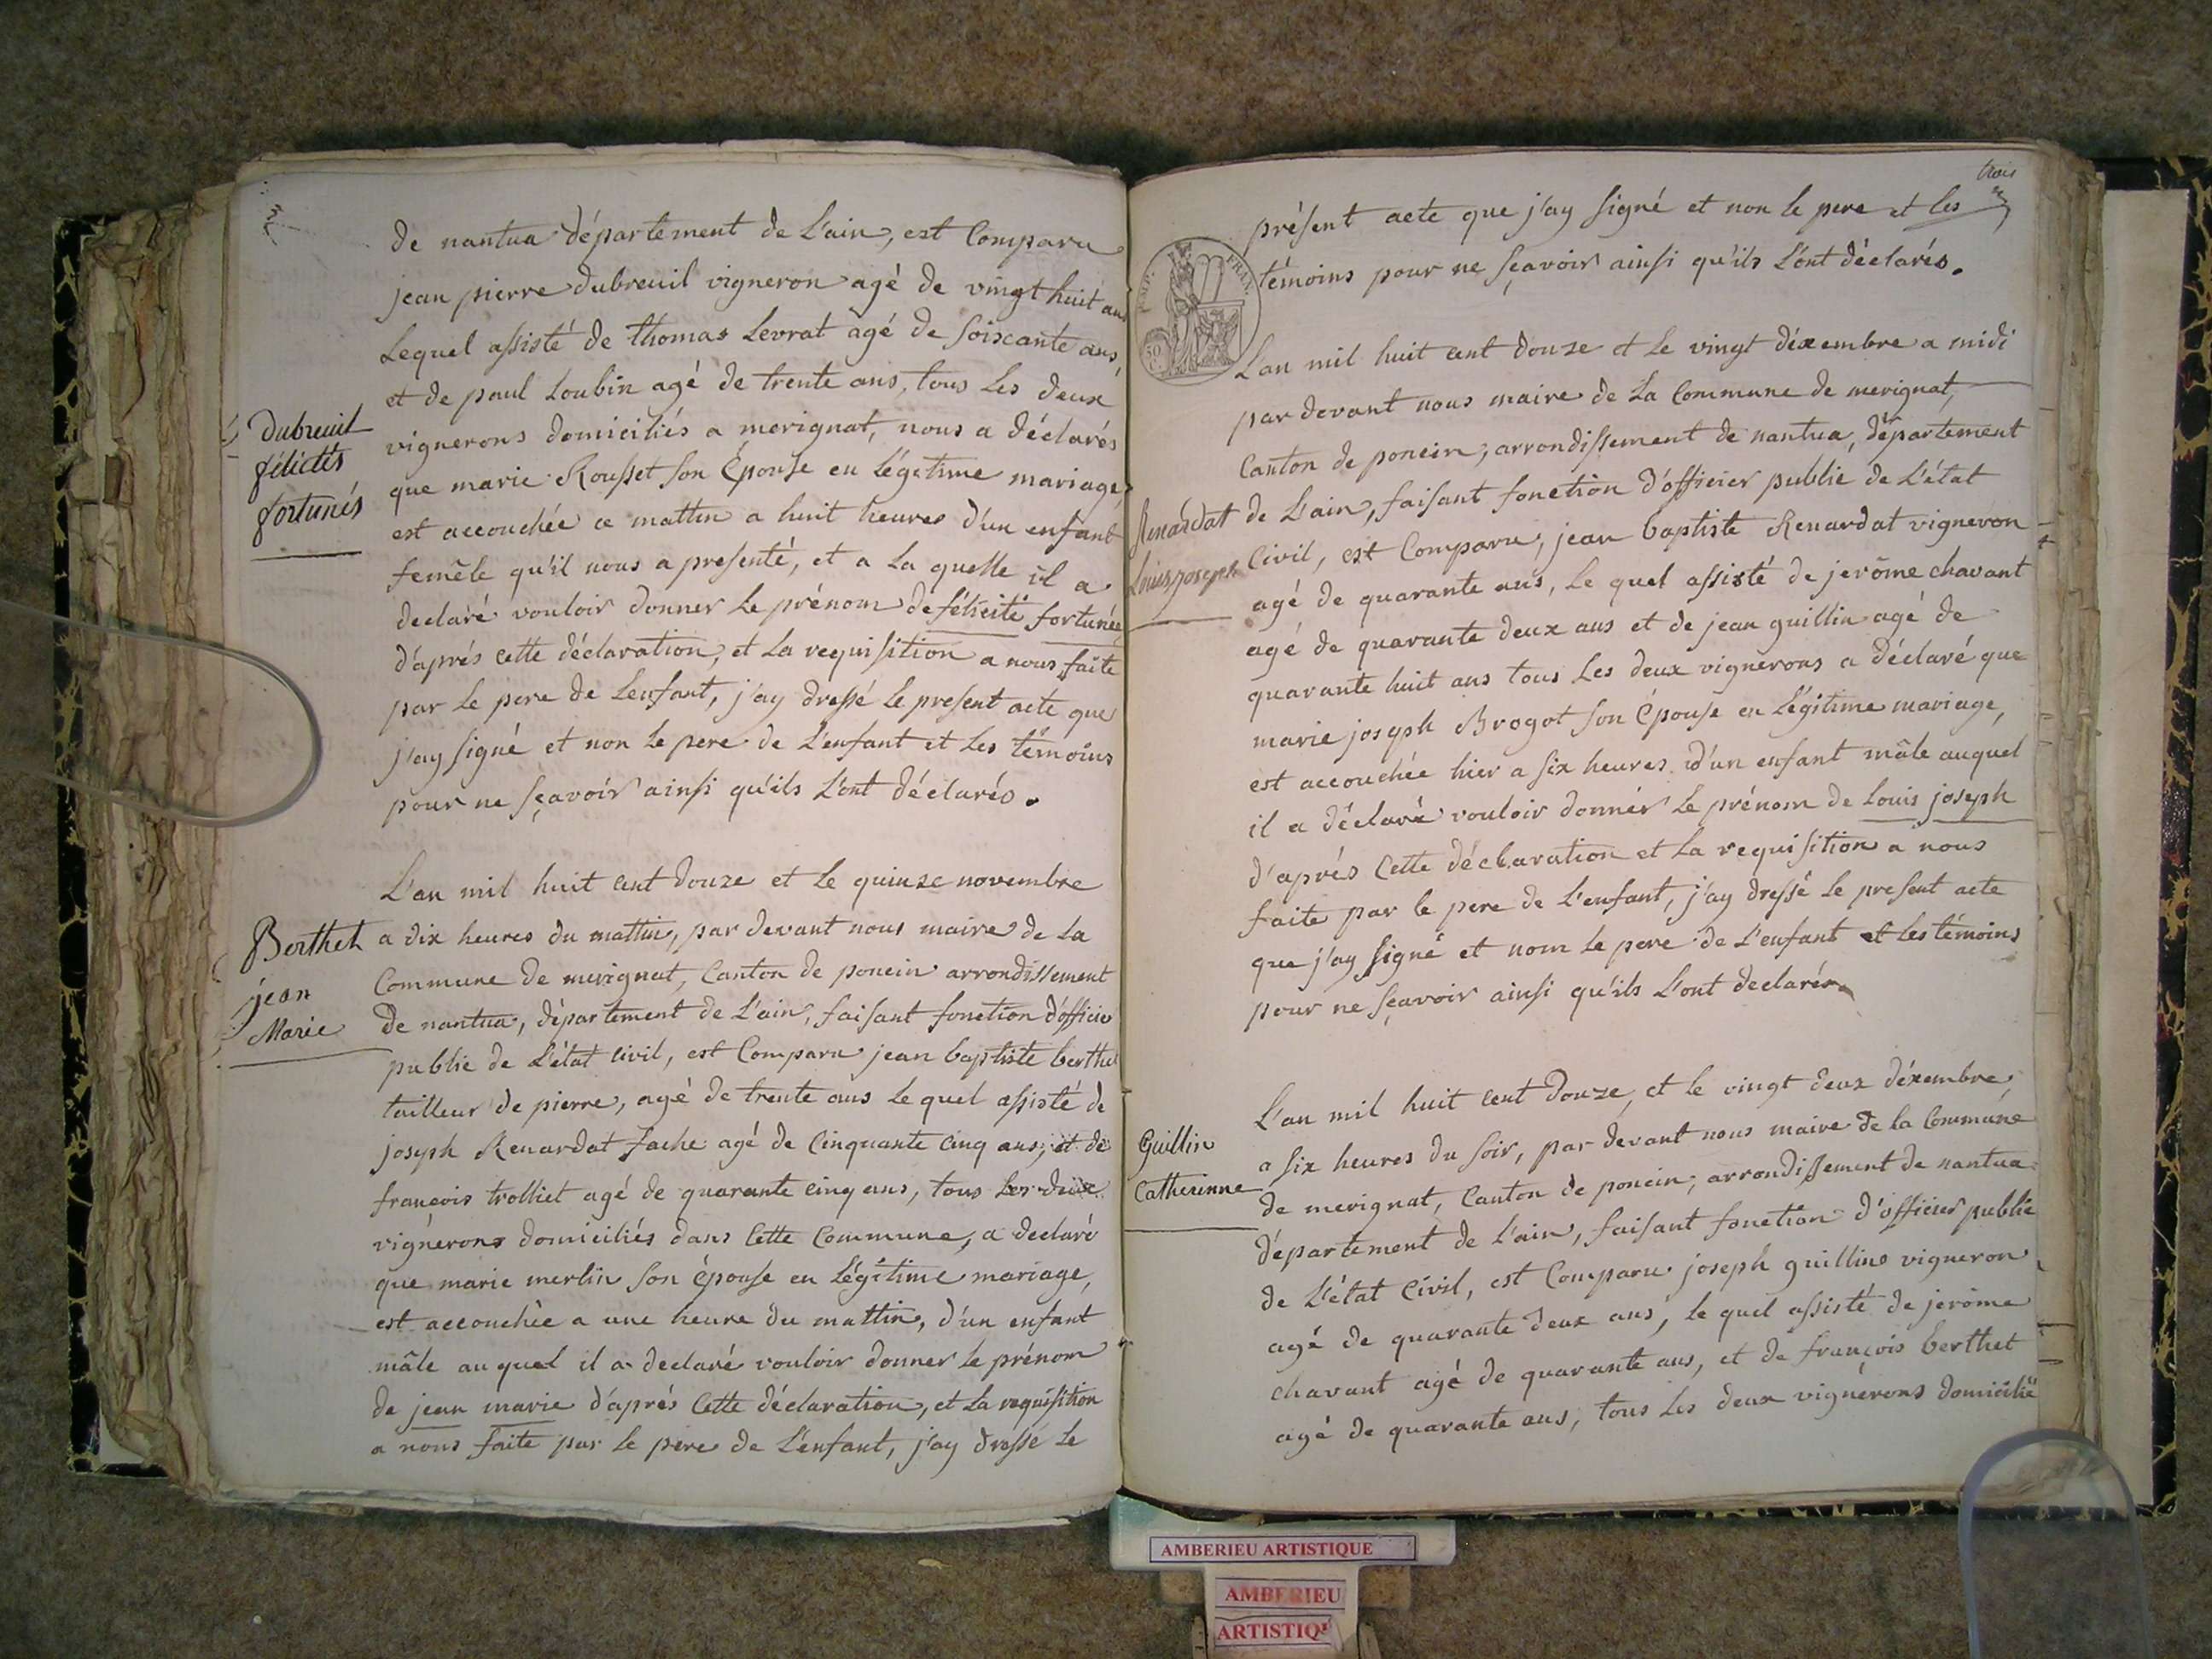 de nantua département de L'ain, est Comparu
jean pierre dubreuil vigneron agé de vingt huit ans
Lequel assisté de thomas Levrat agé de soixante ans,
et de paul Loubin agé de trente ans, tous Les deux
dubreuil
félicités
fortunés
vignerons domiciliés a merignat, nous a déclarés
que marie Rousset son Épouse en Légitime mariage,
est accouchée ce mattin a huit heures d'un enfant
femêle qu'il nous a presenté, et a La quelle il a
declaré vouloir donner Le prénom de félicité fortunée,
d'aprés cette déclaration, et La requisition a nous faite
par Le pere de Lenfant, j'ay dressé Le present acte que
j'ay signé et non Le pere de L'enfant et Les témoins
pour ne sçavoir ainsi qu'ils L'ont déclarés.
L'an mil huit cent douze et Le quinze novembre
Berthet
jean
Marie
a dix heures du mattin, par devant nous maire de La
Commune de merignat, Canton de poncin arrondissement
de nantua, département de L'ain, faisant fonction d'officier
public de L'état Civil, est Comparu jean baptiste berthet
tailleur de pierre, agé de trente ans Le quel assisté de
joseph Renardat fache agé de Cinquante Cinq ans, et de
françois trolliet agé de quarante cinq ans, tous Les deux
vignerons domiciliés dans Cette Commune, a declaré
que marie merlin son épouse en Légitime mariage,
est accouchée a une heure du mattin, d'un enfant
mâle au quel il a declaré vouloir donner Le prénom
de jean marie d'aprés Cette déclaration, et La requisition
a nous faite par Le pere de L'enfant, j'ay dressé Le
trois
présent acte que j'ay signé et non le pere et les
témoins pour ne sçavoir ainsi qu'ils L'ont déclarés.
EMP. FRAN.
50
L'an mil huit cent douze et Le vingt déxembre a midi
par devant nous maire de La Commune de merignat,
Canton de poncin, arrondissement de nantua, département
Renardat
Louis joseph
de L'ain, faisant fonction d'officier public de L'état
Civil, est Comparu, jean baptiste Renardat vigneron
agé de quarante ans, Le quel assisté de jerôme chavant
agé de quarante deux ans et de jean guillin agé de
quarante huit ans tous Les deux vignerons a déclaré que
marie joseph Brogot son Épouse en Légitime mariage,
est accouchée hier a six heures d'un enfant mâle auquel
il a déclaré vouloir donner Le prénom de Louis joseph
d'aprés Cette déclaration et La requisition a nous
faite par le pere de L'enfant, j'ay dressé Le present acte
que j'ay signé et nom Le pere de L'enfant et Les témoins
pour ne sçavoir ainsi qu'ils L'ont declarés
L'an mil huit cent douze, et le vingt deux déxembre,
Guillin
Catherinne
a six heures du soir, par devant nous maire de la Commune
de merignat, Canton de poncin, arrondissement de nantua
département de L'ain, faisant fonction d'officier public
de L'état Civil, est Comparu joseph guillin vigneron
agé de quarante deux ans, le quel assisté de jerôme
chavant agé de quarante ans, et de françois berthet
agé de quarante ans, tous Les deux vignerons domicilié
AMBERIEU ARTISTIQUE
AMBERIEU
ARTISTIQUE